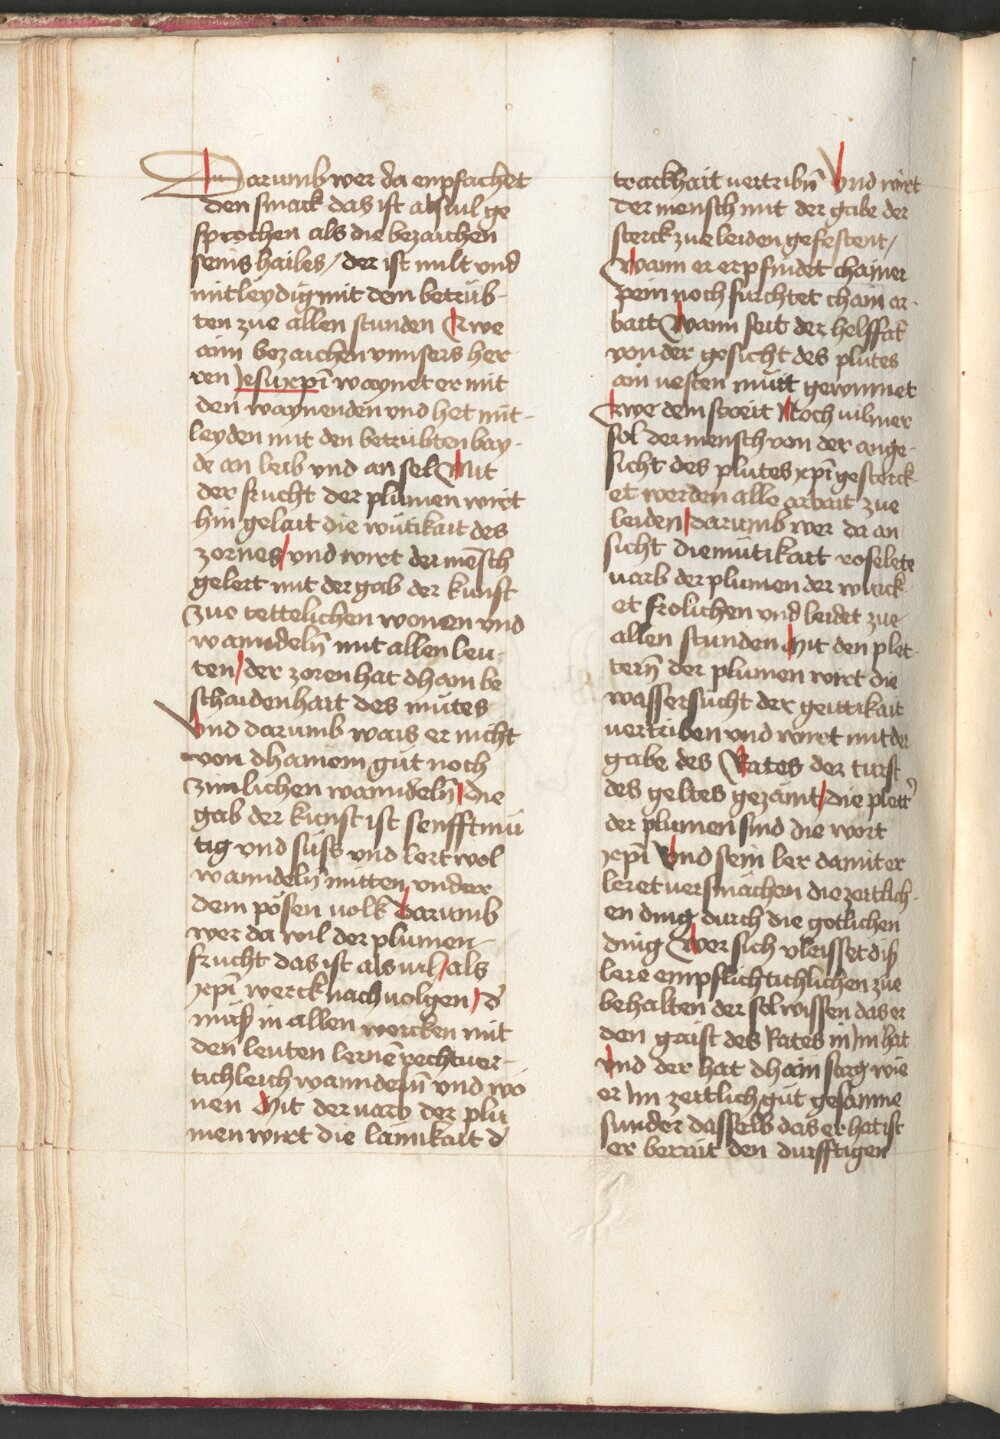 Darumb wer da enpfachet
den smack das ist als vil ge
sprochen als die bezaichen
seins hailes / der ist milt vnd
mitleydig mit dem betrüb-
ten zue allen stunden Zwe
aim bezaichen vnnsers her
ren Jesu xp̄i waynet er mit
den waynenden vnd het mit-
leyden mit den betrübten bay-
de an leib vnd an sel Mit
der frucht der plumen wirt
hin gelait die wütikait des
zornes / vnd wirt der mēsch
gelert mit der gab der kunst
zue tettelichen wonen vnd
wanndelñ mit allen leu-
ten / der zoren hat dhain be
schaidenhait des mütes
Vnd darumb wais er nicht
von dhainem gut noch
zimlichen wanndelñ / die
gab der kunst ist senfftmü
tig vnd süss vnd lert wol
wanndelñ mitten vnder
dem pösen volk Darumb
wer da wil der plumen
frucht das ist als vil / als
xp̄i werck nach volgen / d'
müss in allen wercken mit
den leuten lernē rechtuer-
tichleich wanndelñ vnd wo
nen Mit der varb der plu
men wirt die lainikait d'
trackhait vertribñ Vnd wirt
der mensch mit der gabe der
sterck zue leiden gefestent /
Wann er erpfindet chainer
pein noch furchtet chain ar-
bait Wann seit der helffat
von der gesicht des plutes
ain vesten mütt gewinnet
Zwe dem streit Noch vil mer
sol der mensch von der ange-
sicht des plutes xp̄i gesterck-
et werden alle arbait zue
leiden / darumb wer da an
sicht diemütikait roselete
varb der plumen der wurck
et frolichen vnd leidet zue
allen stunden Mit den plet-
terñ der plumen wirt die
wassersucht der geittikait
vertriben vnd wirt mit der
gabe des Rates der turst
des geltes gezämt / die plett'
der plumen sind die wort
xp̄i Vnd sein ler damit er
leret versmächen die zeitlich-
en ding durch die gotlichen
ding Wer sich vleisset diss
lere empflichtichlichen zue
behalten der sol wissen das er
den gaist des Rates in Jm hat
Vnd der hat dhain sorg wie
er Jm zeitlich gut gesamne
sunder dasselb das er hat ist
er berait den durfftigen